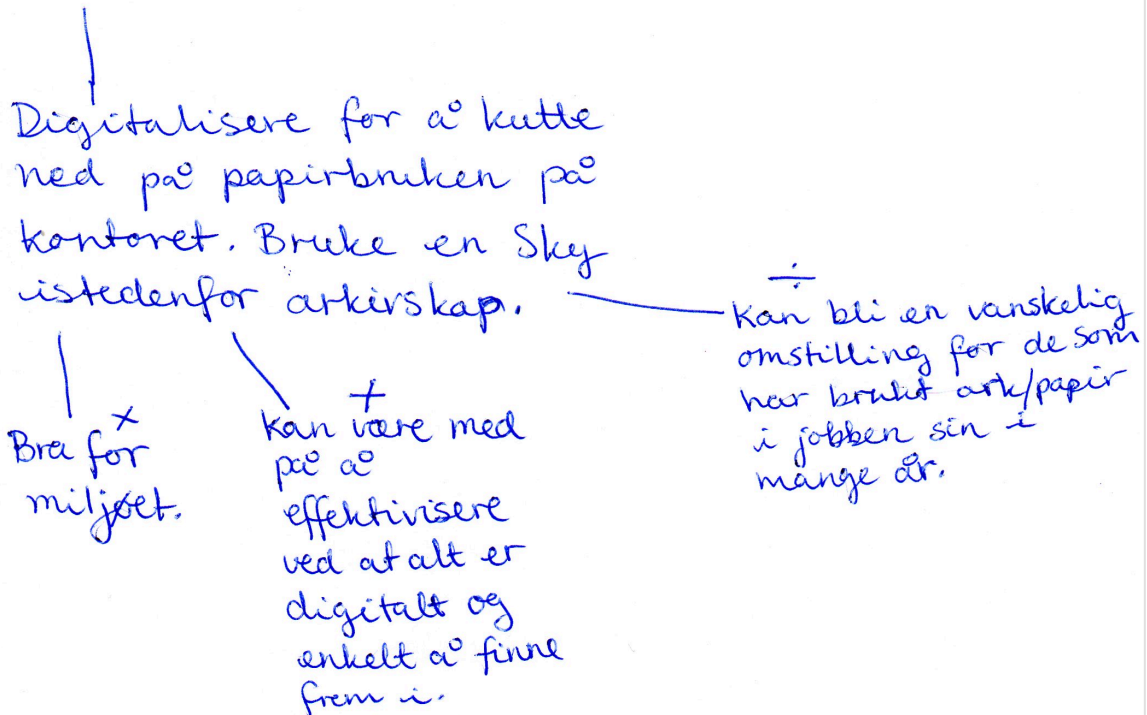 Digitalisere for å kutte
ned på papirbruken på
kontoret. Bruke en Sky
istedenfor arkivskap.
+
Bra for
miljøet.
+
kan være med
på å
effektivisere
ved at alt er
digitalt og
enkelt å finne
frem i.
÷
Kan bli en vanskelig
omstilling for de som
har brukt ark/papir
i jobben sin i
mange år.